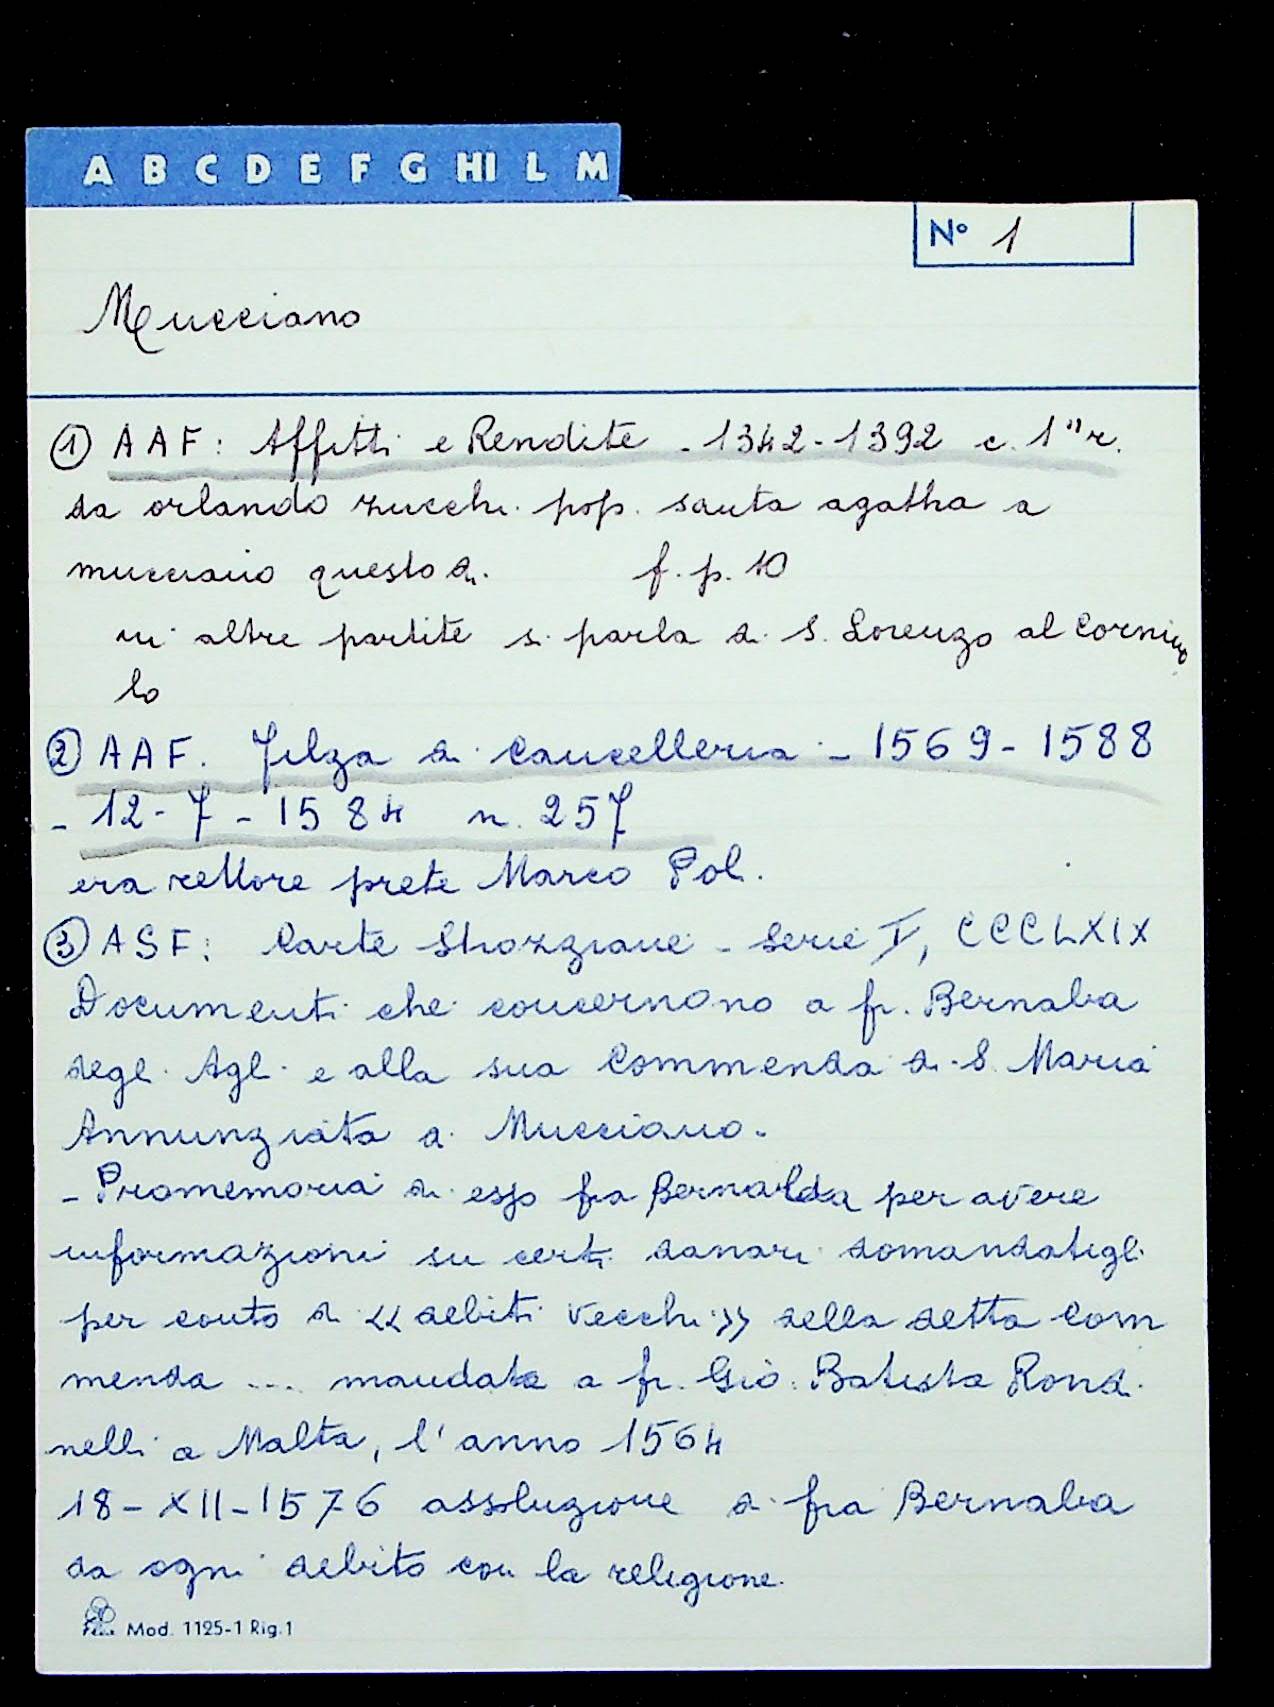 A B C D E F G HI L M
N° 1
Mucciano
① AAF: Affitti e Rendite - 1342-1392 c. 1" r.
da orlando zucchi pop. santa agatha a
mucciano questo di. f. p. 10
in altre partite si parla di S. Lorenzo al Cornino
lo
② AAF. Filza di Cancelleria - 1569-1588
- 12-7-1584 n. 257
era rettore prete Marco Pol.
③ ASF: Carte Strozziane - Serie I, CCCLXIX
Documenti che concernono a fr. Bernaba
degli Agli e alla sua Commenda di S. Maria
Annunziata a Mucciano.
- Promemoria di esso fra Bernalda per avere
informazioni su certi danari domandatigli
per conto di << debiti vecchi >> della detta Com
menda .... mandata a fr. Giò: Batista Rondi
nelli a Malta, l'anno 1564
18-XII-1576 assoluzione di fra Bernaba
da ogni debito con la religione.
Mod. 1125-1 Rig.1